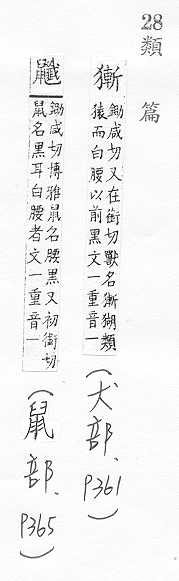 28 類篇
獑
鋤咸切又在銜切獸名獑猢類
猿而白腰以前黑文一重音一
(犬部、P361)
鋤咸切博雅鼠名腰黑又初銜切
鼠名黑耳白腰者文一重音一
(鼠部、P365)